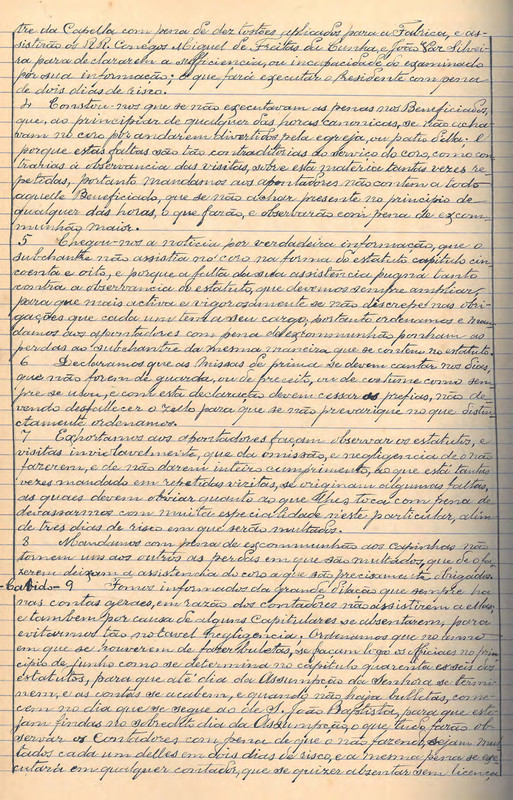 tre da Capella com pena de dez tostões aplicados para a Fabrica, e as-
sistirão os R.R. Conegos Miguel de Freitas da Cunha, e João Vaz Silvei-
ra para declararem a sufficiencia, ou incapacidade do examinado
por sua informação; o que fará executar o Presidente com pena
de dois dias de risco.
4 Constou-nos que se não executavam as penas nos Beneficiados,
que, ao principiar de qualquer das horas canonicas, se não acha-
vam no coro por andarem divertidos pela egreja, ou pateo della: E
porque estas faltas são tão contraditorias ao serviço do coro, como con-
trarias á observancia das visitas, sobre esta materia tantas vezes re-
petidas, portanto mandamos aos apontadores não contem a todo
aquelle Beneficiado, que se não achar presente no principio de
qualquer das horas, o que farão, e observarão com pena de excom-
munhão maior.
5 Chegou-nos a noticia por verdadeira informação, que o
subchantre não assistia no coro na forma do estatuto capitulo cin-
coenta e oito, e porque a falta da sua assistencia pugna tanto
contra a observancia do estatuto, que devemos sempre ampliar,
para que mais activa e vigorosamente se não descrepe nas obri-
gações que cada um tem a seu cargo, portanto ordenamos e man-
damos aos apontadores com pena de excommunhão ponham as
perdas ao subchantre da mesma maneira que se contem no estatuto.
6 Declaramos que as Missas de prima se devem cantar nos dias,
que não forem de guarda, ou de preceito, ou de costume como sem-
pre se usou, e com esta declaração devem cessar as prefias, não de-
vendo desfallecer o zello para que se não prevarique no que distin-
ctamente ordenamos.
7 Exportamos aos apontadores façam observar os estatutos, e
visitas inviolavelmente, que da omissão, e negligencia de o não
fazerem, e de não darem inteiro cumprimento, ao que está tantas
vezes mandado em repetidas vizitas, se originam algumas faltas,
as quaes devem obviar quanto ao que lhes toca com pena de
devassarmos com muita especialidade n'este particular, alem
de tres dias de risco em que serão multados.
8 Mandamos com pena de excommunhão aos capinhas não
tomem uns aos outros as perdas em que são multados, que de o fa-
zerem deixam a assistencia do coro a que são precisamente obrigados.
Cabido - 9 Fomos informados da grande dilação que sempre ha
nas contas geraes, em razão dos contadores não assistirem a ellas,
e tambem por causa de alguns Capitulares se absentarem, para
evitarmos tão notavel negligencia; Ordenamos que no anno
em que se houverem de fazer buletas, se façam logo os officiaes no prin-
cipio de Junho como se determina no capitulo quarenta e seis dos
estatutos, para que até dia da Assumpção da Senhora se termi-
nem, e as contas se acabem, e quando não haja bulletas, come-
cem no dia que se segue ao de S. João Baptista, para que este-
jam findas no sobredito dia da Assumpção, o que tudo farão ob-
servar os Contadores com pena de que o não fazendo, sejam mul-
tados cada um delles em dois dias de risco, e a mesma pena se exe-
cutará em qualquer contador, que se quizer absentar sem licença